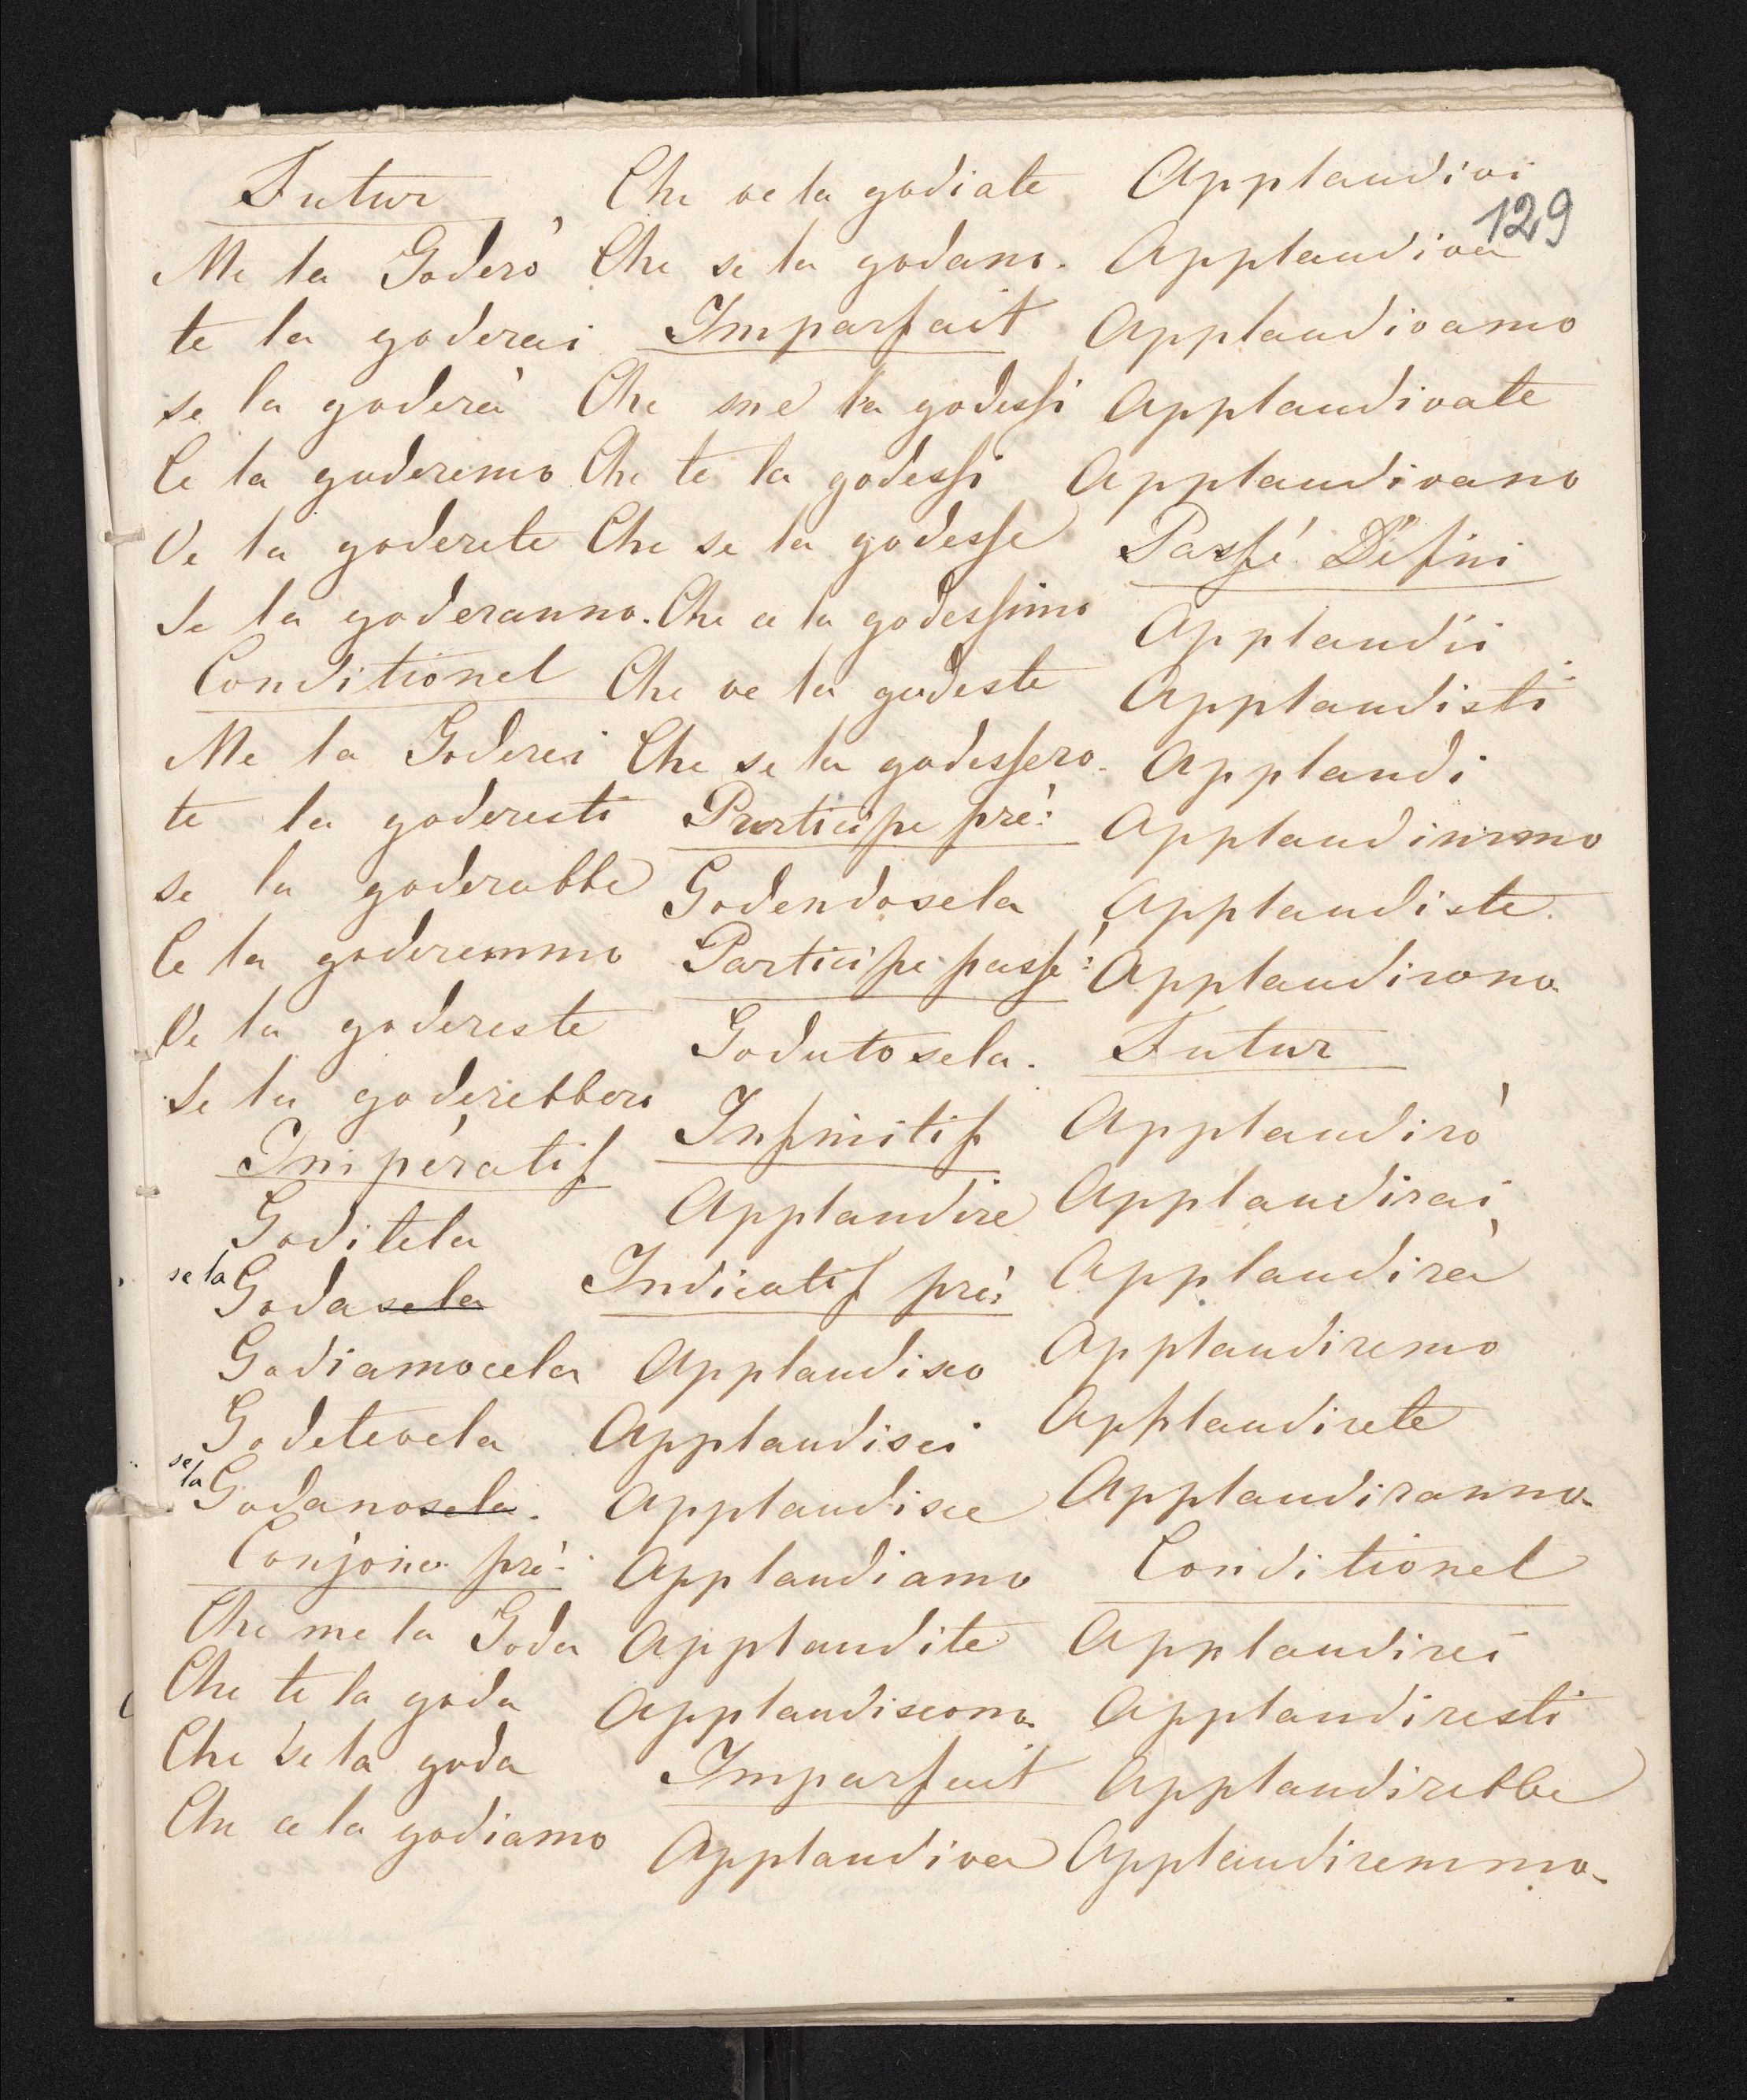 129
Futur
Me la Goderò
te la goderai
se la goderà
Ce la goderemo
Ve la goderete
Se la goderanno.
Conditionel
Me la Goderei
te la goderesti
se la goderabbe
Ce la goderemmo
Ve la godereste
Se la goderebbero
Impératif
Goditela
se la Godasela
Godiamocela
Godetevela
se la Godanosela.
Conjonc. pré:
Che me la Goda
Che te la goda
Che se la goda
Che ce la godiamo
Che ve la godiate
Che se la godano.
Imparfait
Che me la godessi
Che te la godessi
Che se la godesse
Che ce la godessimo
Che ve la godeste
Che se la godessero.
Participe pré:
Godendosela
Participe passé:
Godutosela.
Infinitif
Applaudire
Indicatif pré:
Applaudisco
Applaudisci
Applaudisce
Applaudiamo
Applaudite
Applaudiscono.
Imparfait
Applaudiva
Applaudivi
Applaudiva
Applaudivamo
Applaudivate
Applaudivano
Passé Défini
Applaudii
Applaudisti
Applaudi
Applaudimmo
Applaudiste.
Applaudirono.
Futur
Applaudirò
Applaudirai
Applaudirà
Applaudiremo
Applaudirete
Applaudiranno.
Conditionel
Applaudirei
Applaudiresti
Applaudirebbe
Applaudiremmo.